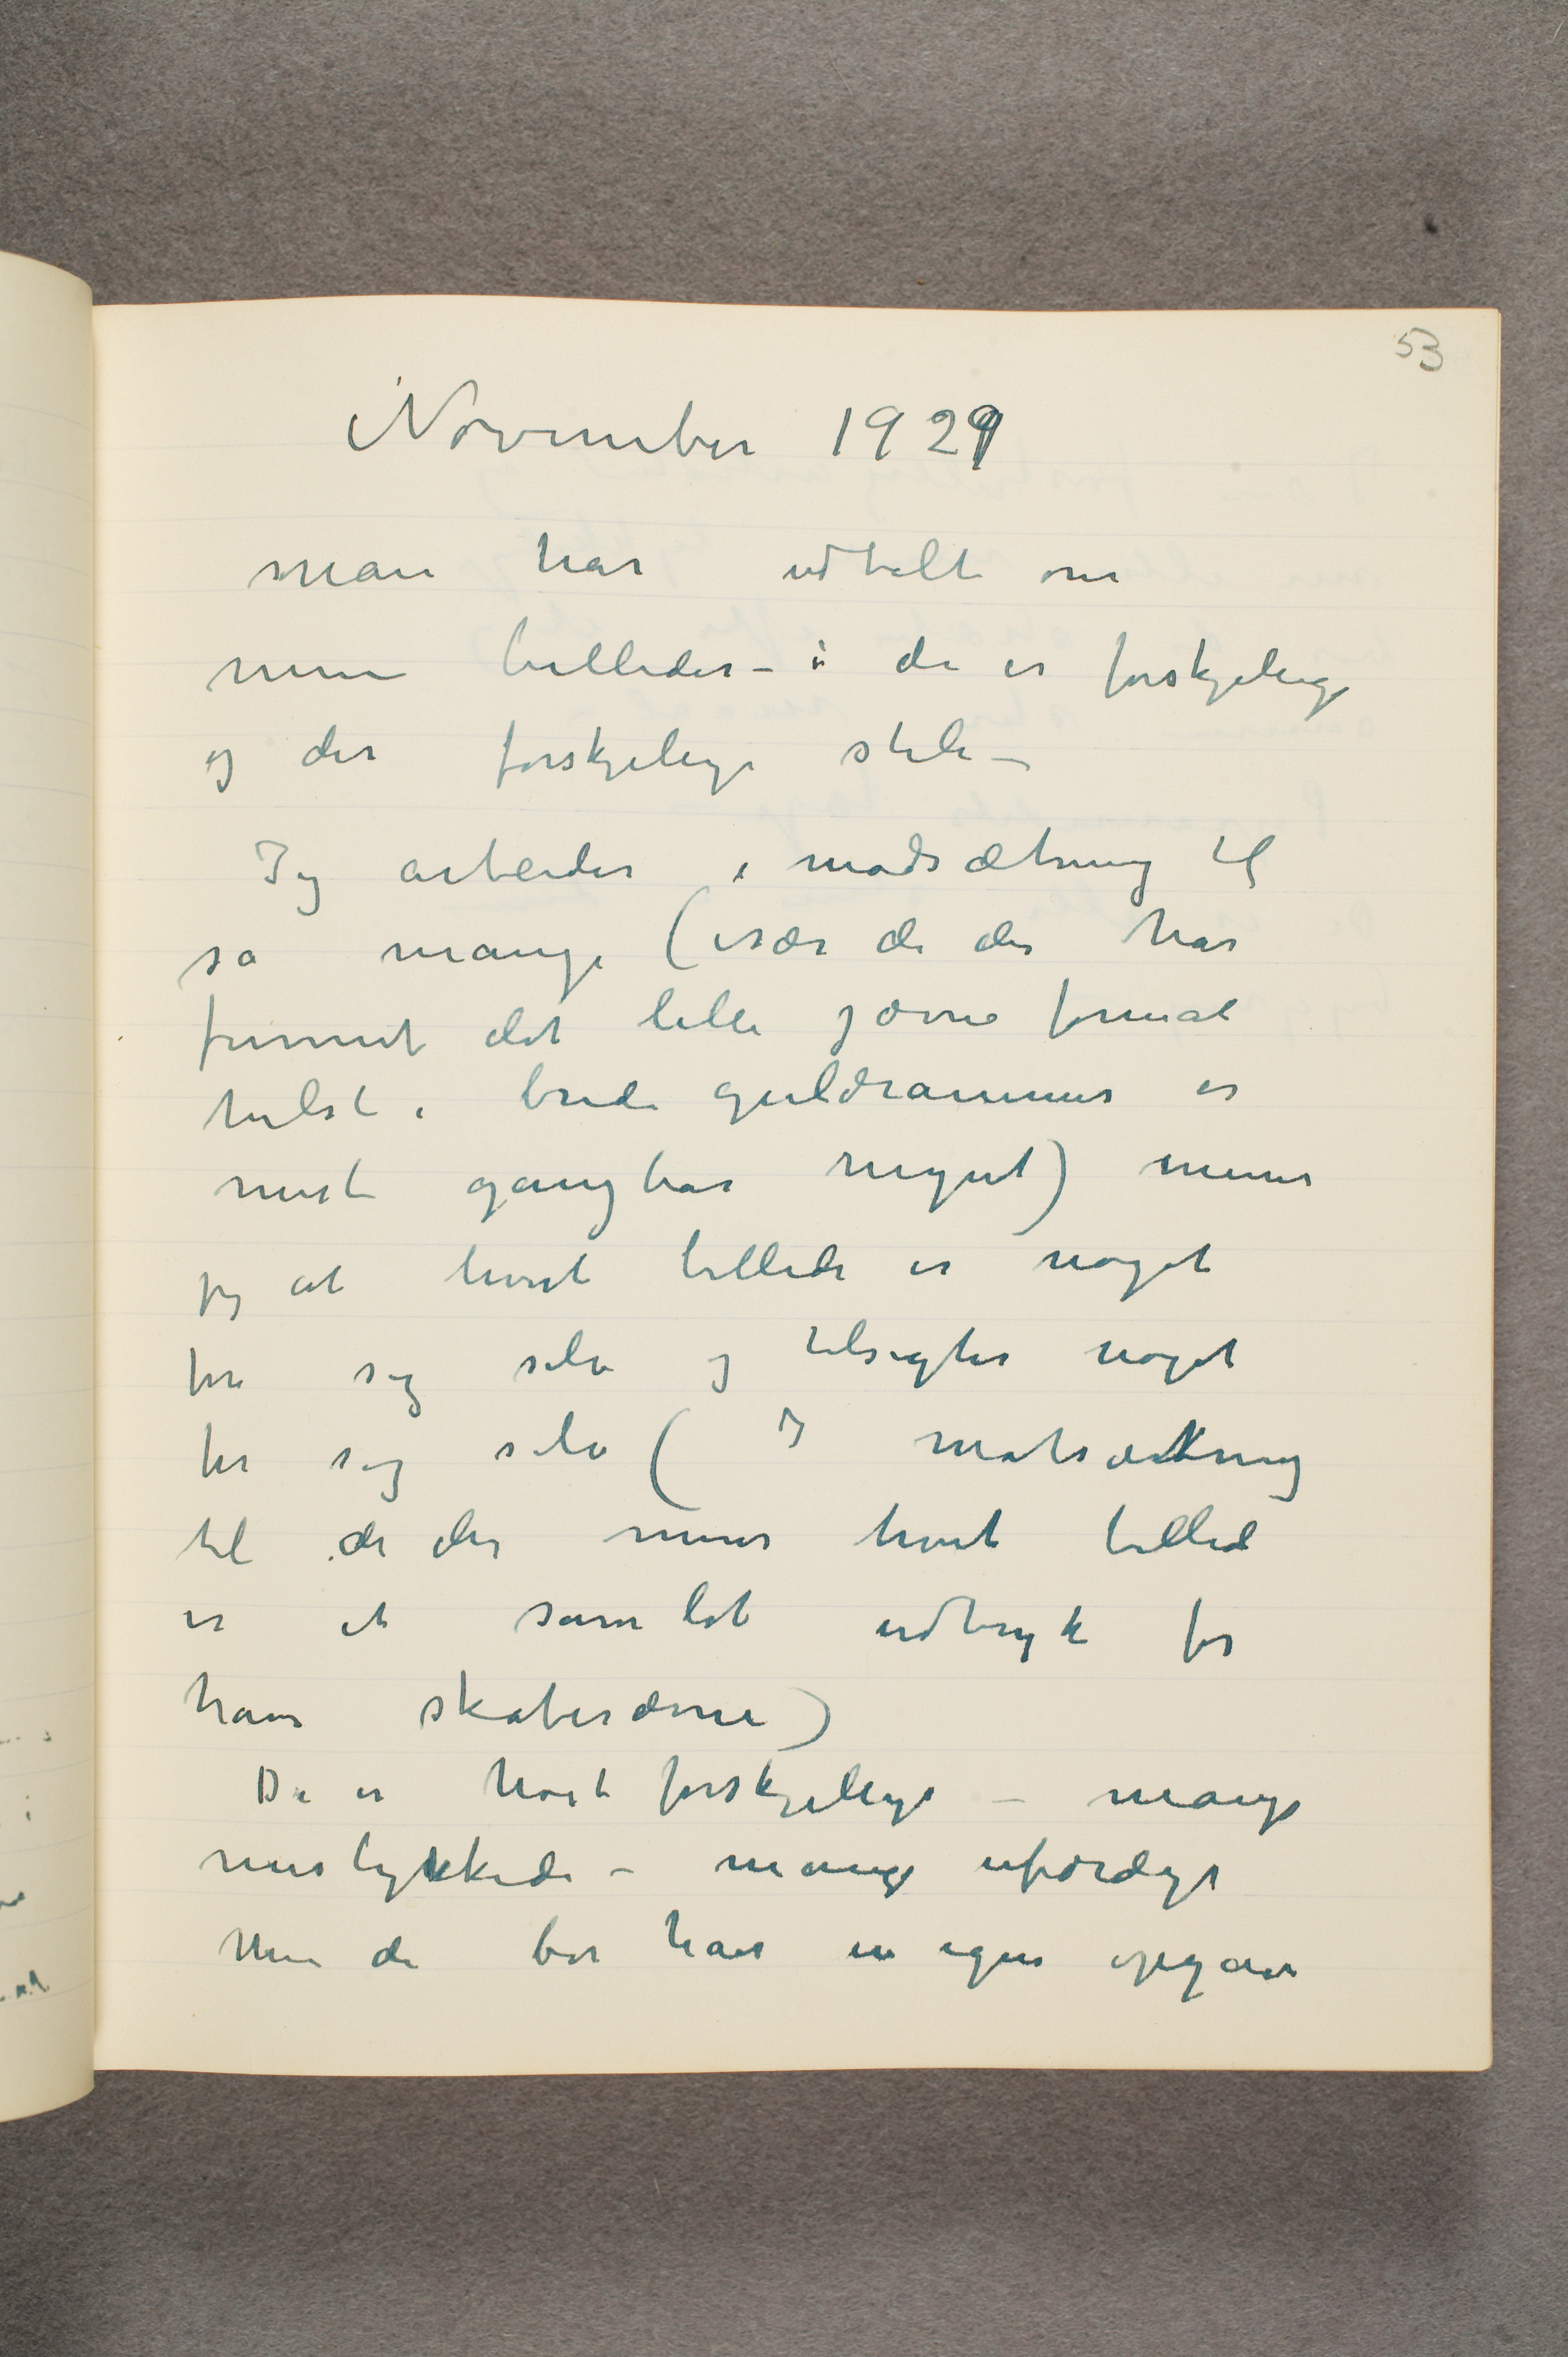 53
November 1929
man har udtalt om
mine billeder – i de er forskjelige
og der forskjelige stile –
Jeg arbeider i modsætning til
så mange (især de der har
funnet det lille jævne format
helst i brede guldrammer er
mest gangbar mynt) mener
jeg at hvert billede er noget
for sig selv og tilsigter noget
for sig selv ( I motsætning
til de der mener hvert billed
er et samlet udtryk for
hans skaberævne)
De er høist forskjellige – mange
mislykkede – mange ufærdige
Men de bør have en egen opgave